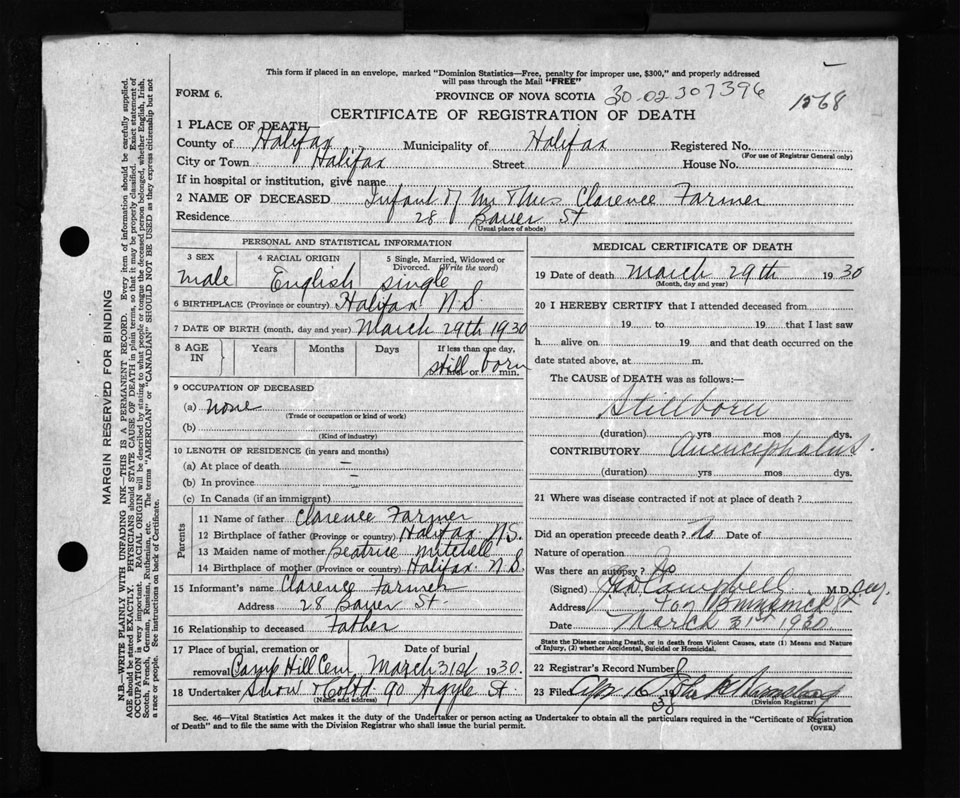 This form if placed in an envelope, marked "Dominion Statistics—Free, penalty for improper use, $300," and properly addressed
will pass through the Mail "FREE"
FORM 6.
PROVINCE OF NOVA SCOTIA 30-02-307396
1568
CERTIFICATE OF REGISTRATION OF DEATH
1 PLACE OF DEATH
County of Halifax Municipality of Halifax Registered No.
(For use of Registrar General only)
City or Town Halifax Street House No.
If in hospital or institution, give name
2 NAME OF DECEASED Infant of Mr & Mrs Clarence Farmer
Residence 28 Bauer St
(Usual place of abode)
PERSONAL AND STATISTICAL INFORMATION
3 SEX 4 RACIAL ORIGIN 5 Single, Married, Widowed or
Divorced. (Write the word)
male English single
6 BIRTHPLACE (Province or country) Halifax N.S.
7 DATE OF BIRTH (month, day and year) March 29th 1930
8 AGE IN Years Months Days If less than one day,
still born
hrs. or min.
9 OCCUPATION OF DECEASED
(a) none
(Trade or occupation or kind of work)
(b)
(Kind of industry)
10 LENGTH OF RESIDENCE (in years and months)
(a) At place of death —
(b) In province —
(c) In Canada (if an immigrant)
Parents
11 Name of father Clarence Farmer
12 Birthplace of father (Province or country) Halifax N.S.
13 Maiden name of mother Beatrice Mitchell
14 Birthplace of mother (Province or country) Halifax N.S.
15 Informant's name Clarence Farmer
Address 28 Bauer St.
16 Relationship to deceased Father
17 Place of burial, cremation or Date of burial
removal Camp Hill Cem March 31st 1930.
18 Undertaker Snow & Co Ltd 90 Argyle St.
(Name and address)
MEDICAL CERTIFICATE OF DEATH
19 Date of death March 29th 1930
(Month, day and year)
20 I HEREBY CERTIFY that I attended deceased from
19 to 19 that I last saw
h alive on 19 and that death occurred on the
date stated above, at m.
The CAUSE OF DEATH was as follows:—
Stillborn
(duration) yrs mos dys.
CONTRIBUTORY Anencephalus.
(duration) yrs mos dys.
21 Where was disease contracted if not at place of death?
Did an operation precede death? No. Date of
Nature of operation
Was there an autopsy? No
(Signed) Geo Campbell M.D.
Address 407 Brunswick St
Date March 31st 1930
State the Disease causing Death, or in death from Violent Causes, state (1) Means and Nature
of Injury, (2) whether Accidental, Suicidal or Homicidal.
22 Registrar's Record Number
23 Filed Apr 16
(Division Registrar)
38
Sec. 46—Vital Statistics Act makes it the duty of the Undertaker or person acting as Undertaker to obtain all the particulars required in the "Certificate of Registration
of Death" and to file the same with the Division Registrar who shall issue the burial permit.
(OVER)
MARGIN RESERVED FOR BINDING
N.B.—WRITE PLAINLY WITH UNFADING INK—THIS IS A PERMANENT RECORD. Every item of information should be carefully supplied.
AGE should be stated EXACTLY. PHYSICIANS should STATE CAUSE OF DEATH in plain terms, so that it may be properly classified. Exact statement of
OCCUPATION is very important. RACIAL ORIGIN will be described by stating to what people or tongue the deceased person belonged, whether English, Irish,
Scotch, French, German, Russian, Ruthenian, etc. The terms "AMERICAN" or "CANADIAN" SHOULD NOT BE USED as they express citizenship but not
a race or people. See instructions on back of Certificate.